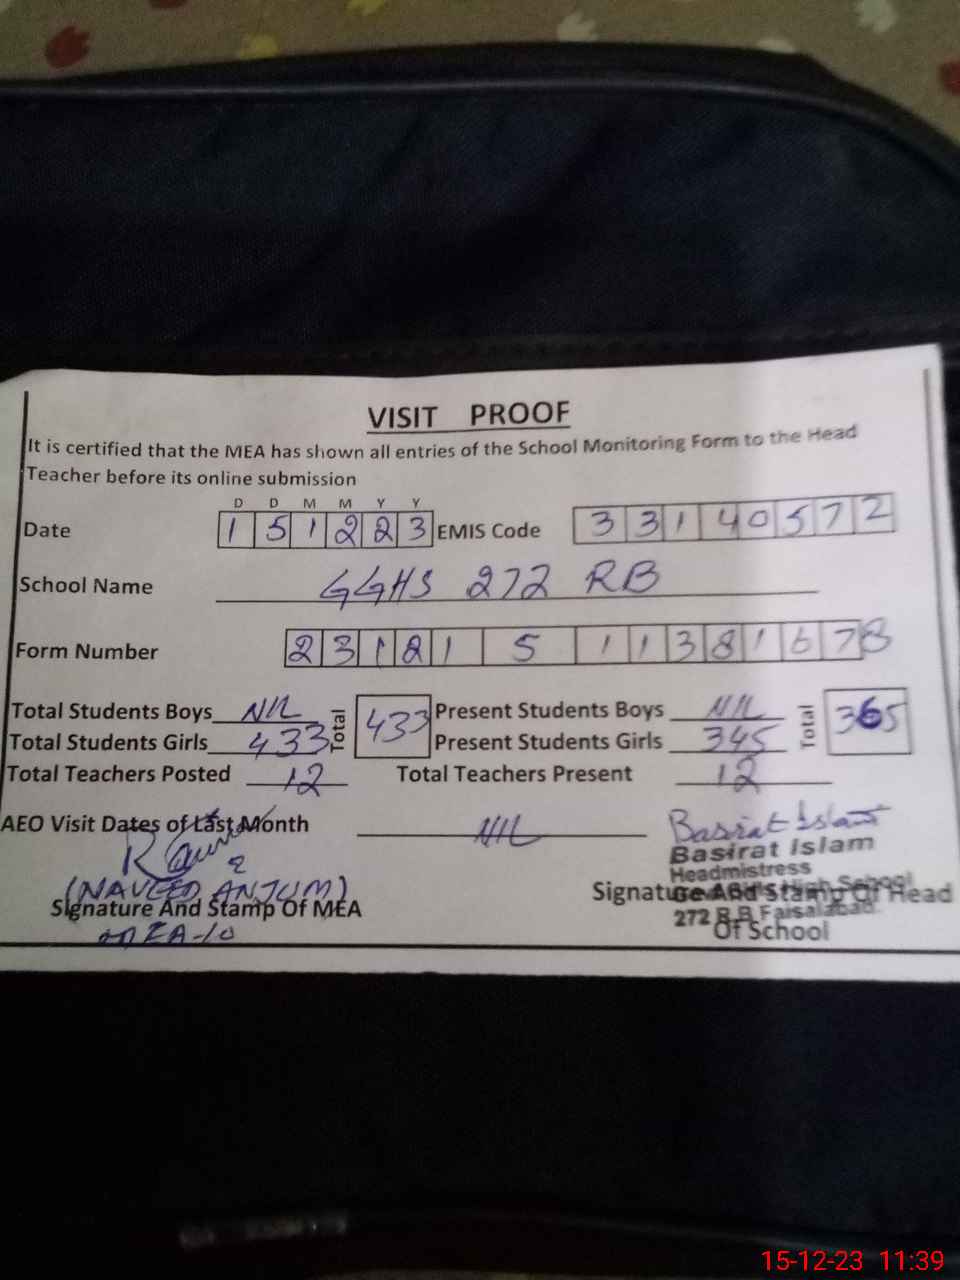 VISIT PROOF
It is certified that the MEA has shown all entries of the School Monitoring Form to the Head
Teacher before its online submission
D D M M Y Y
Date 1 5 1 2 2 3 EMIS Code 3 3 1 4 0 5 7 2
School Name GGHS 272 RB
Form Number 2 3 1 2 1 5 1 1 3 8 1 6 7 8
Total Students Boys NIL Total 433 Present Students Boys NIL Total 365
Total Students Girls 433 Present Students Girls 345
Total Teachers Posted 12 Total Teachers Present 12
AEO Visit Dates of Last Month NIL Basirat Islam
Basirat Islam
Headmistress
(NAVEED ANJUM) High School
Signature And Stamp Of MEA Signature And Stamp Of Head
272 R.B Faisalabad.
MEA-10 Of School
15-12-23 11:39